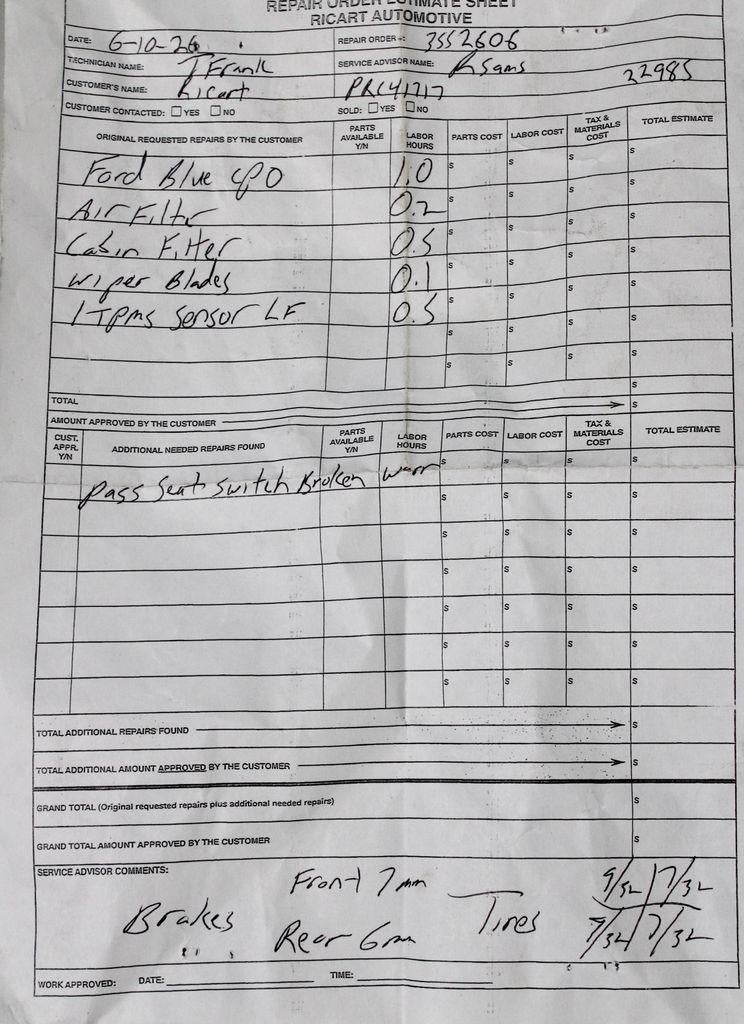 REPAIR ORDER ESTIMATE SHEET
RICART AUTOMOTIVE
DATE: 6-10-26 REPAIR ORDER #: 3552606
TECHNICIAN NAME: T Frank SERVICE ADVISOR NAME: R Sams 22985
CUSTOMER'S NAME: Ricart PRC41717
CUSTOMER CONTACTED: ☐ YES ☐ NO SOLD: ☐ YES ☐ NO
ORIGINAL REQUESTED REPAIRS BY THE CUSTOMER PARTS AVAILABLE Y/N LABOR HOURS PARTS COST LABOR COST TAX & MATERIALS COST TOTAL ESTIMATE
Ford Blue CPO 1.0 $ $ $ $
Air Filtr 0.2 $ $ $ $
Cabin Filter 0.5 $ $ $ $
Wiper Blades 0.1 $ $ $ $
1 Tpms Sensor LF 0.5 $ $ $ $
$ $ $ $
$ $ $ $
TOTAL $
AMOUNT APPROVED BY THE CUSTOMER $
CUST. APPR. Y/N ADDITIONAL NEEDED REPAIRS FOUND PARTS AVAILABLE Y/N LABOR HOURS PARTS COST LABOR COST TAX & MATERIALS COST TOTAL ESTIMATE
Pass Seat Switch Broken Warr $ $ $ $
$ $ $ $
$ $ $ $
$ $ $ $
$ $ $ $
$ $ $ $
$ $ $ $
TOTAL ADDITIONAL REPAIRS FOUND $
TOTAL ADDITIONAL AMOUNT APPROVED BY THE CUSTOMER $
GRAND TOTAL (Original requested repairs plus additional needed repairs) $
GRAND TOTAL AMOUNT APPROVED BY THE CUSTOMER $
SERVICE ADVISOR COMMENTS:
Brakes Front 7mm Tires 9/32 7/32
Rear 6mm 7/32 7/32
WORK APPROVED: DATE: TIME: